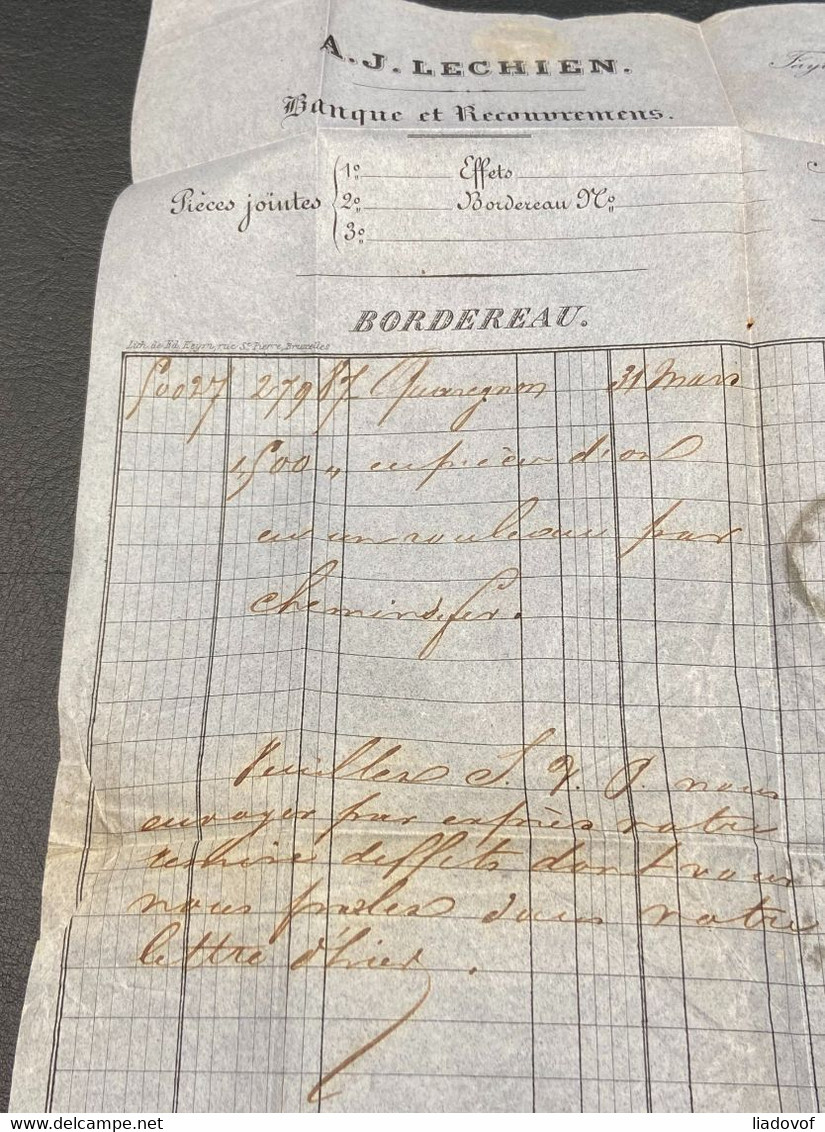 A. J. LECHIEN.
Banque et Recouvremens.
Pièces jointes
1º Effets
2º Bordereau Nº
3º
BORDEREAU.
Lith. de Ed. Heyn, rue St. Pierre, Bruxelles
50027 279 87 Quaregnon 31 Mars
1,500 " en pièces d'or
en un rouleau par
chemin de fer.
Veuillez S. V. P. nous
envoyer par exprès votre
remise d'effets dont vous
nous parlez dans votre
lettre d'hier.
liadovof
delcampe.net